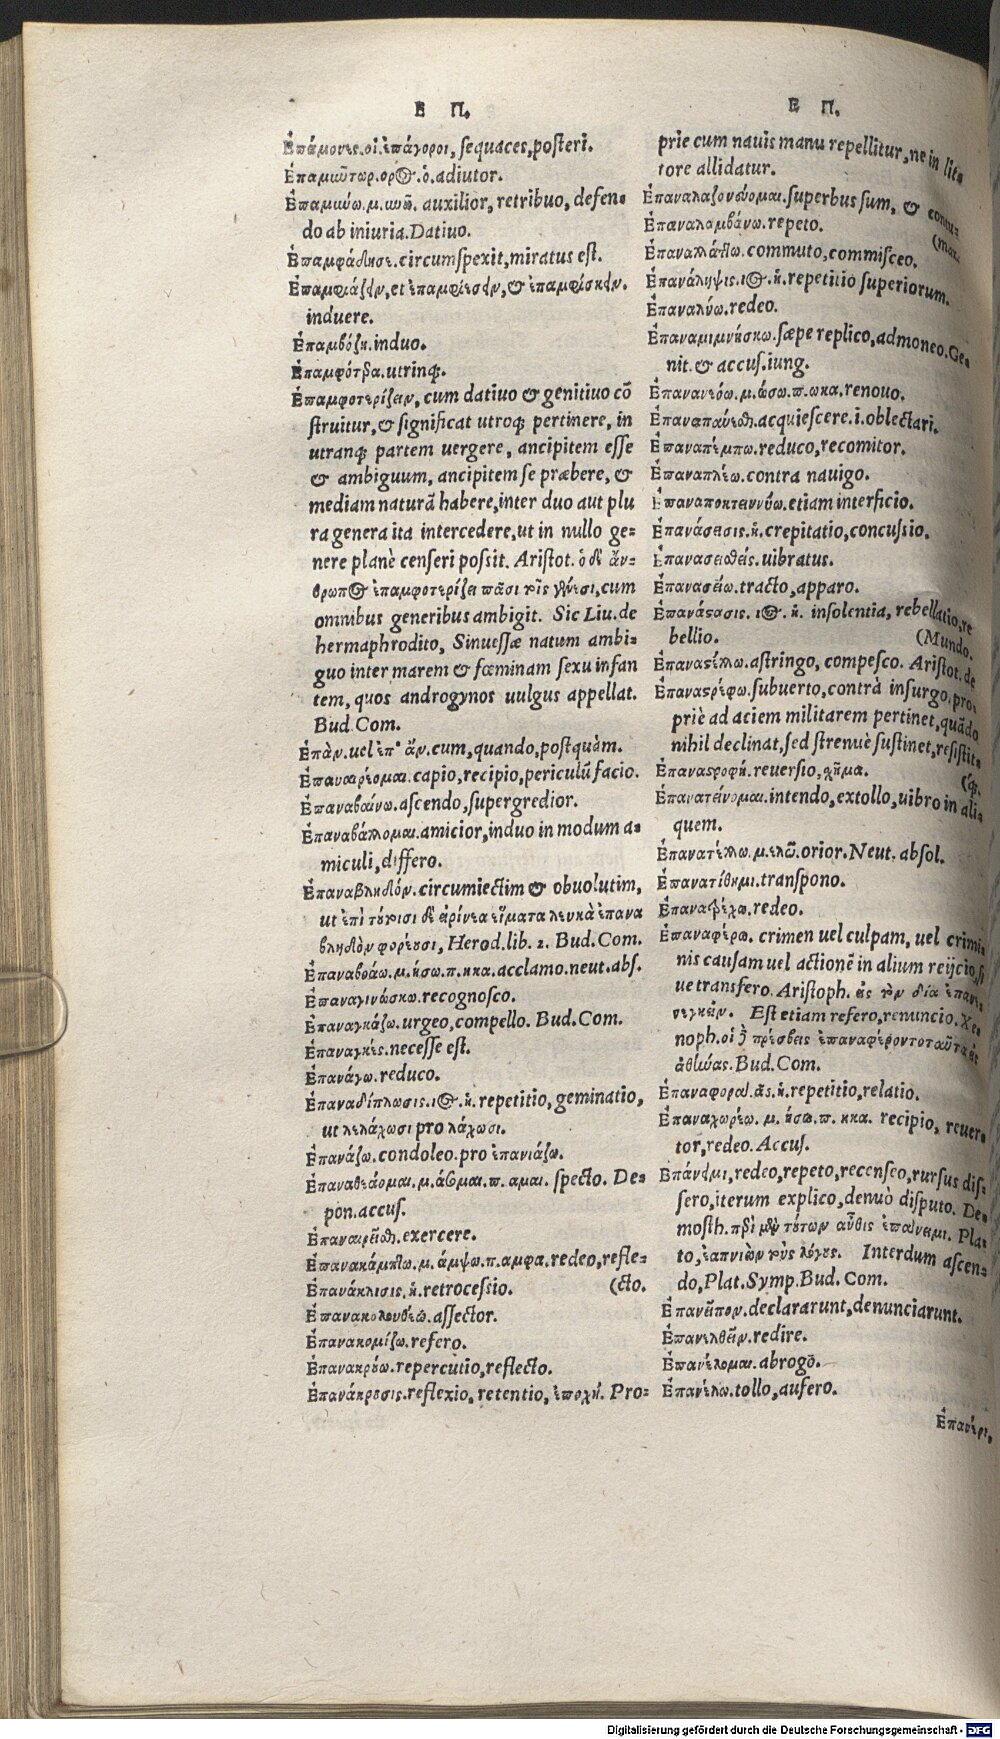 Ε Π.
Ἐπάμονες.οἱ ἐπάγοροι, sequaces, posteri.
Ἐπαμιῦτωρ.ορος.ὁ.adiutor.
Ἐπαμιύω.μ.υνῶ. auxilior, retribuo, defen-
do ab iniuria. Datiuo.
Ἐπαμφάδησε.circumspexit, miratus est.
Ἐπαμφιάζειν, et ἐπαμφιέσειν, & ἐπαμφίσκειν.
induere.
Ἐπαμβόζη.induo.
Ἐπαμφότερα.utrinq;.
Ἐπαμφοτερίζειν, cum datiuo & genitiuo cō
struitur, & significat utroq; pertinere, in
utranq; partem uergere, ancipitem esse
& ambiguum, ancipitem se præbere, &
mediam naturā habere, inter duo aut plu
ra genera ita intercedere, ut in nullo ge-
nere planè censeri possit. Aristot. ὁ δὲ ἄν-
θρωπος ἐπαμφοτερίζει πᾶσι τοῖς γένεσι, cum
omnibus generibus ambigit. Sic Liu. de
hermaphrodito, Sinuessæ natum ambi-
guo inter marem & fœminam sexu infan
tem, quos androgynos uulgus appellat.
Bud. Com.
Ἐπὰν.uel ἐπ' ἄν.cum, quando, postquàm.
Ἐπαναιρέομαι.capio, recipio, periculū facio.
Ἐπαναβαίνω.ascendo, supergredior.
Ἐπαναβάλλομαι.amicior, induo in modum a-
miculi, differo.
Ἐπαναβληδόν.circumiectim & obuolutim,
ut ἐπὶ τούτοισι δὲ εἰρίνεα εἵματα λευκὰ ἐπανα
βληδὸν φορέουσι, Herod. lib. 2. Bud. Com.
Ἐπαναβοάω.μ.ήσω.π.ηκα.acclamo.neut.abs.
Ἐπαναγινώσκω.recognosco.
Ἐπαναγκάζω.urgeo, compello. Bud. Com.
Ἐπαναγκές.necesse est.
Ἐπανάγω.reduco.
Ἐπαναδίπλωσις.ιος.ἡ.repetitio, geminatio,
ut λελάχωσι pro λάχωσι.
Ἐπανάζω.condoleo.pro ἐπανιάζω.
Ἐπαναθεάομαι.μ.άσομαι.π.αμαι. specto. De-
pon. accus.
Ἐπαναιρεῖσθαι.exercere.
Ἐπανακάμπτω.μ.άμψω.π.αμφα.redeo, refle-
Ἐπανάκλισις.ἡ.retrocessio. (cto.
Ἐπανακολουθέω.assector.
Ἐπανακομίζω.refero.
Ἐπανακρούω.repercutio, reflecto.
Ἐπανάκρουσις.reflexio, retentio, ἐποχή. Pro-
Ε Π.
priè cum nauis manu repellitur, ne in lit-
tore allidatur.
Ἐπαναλαζονεύομαι.superbus sum, & contu-
Ἐπαναλαμβάνω.repeto. (max.
Ἐπαναλλάττω.commuto, commisceo.
Ἐπανάληψις.ιος.ἡ.repetitio superiorum.
Ἐπαναλύω.redeo.
Ἐπαναμιμνήσκω.sæpe replico, admoneo. Ge-
nit. & accus. iung.
Ἐπανανεόω.μ.ώσω.π.ωκα.renouo.
Ἐπαναπαύεσθαι.acquiescere.i.oblectari.
Ἐπαναπέμπω.reduco, recomitor.
Ἐπαναπλέω.contra nauigo.
Ἐπαναποκτεννύω.etiam interficio.
Ἐπανάσεισις.ἡ.crepitatio, concussio.
Ἐπανασεισθείς.uibratus.
Ἐπανασείω.tracto, apparo.
Ἐπανάστασις.ιος.ἡ. insolentia, rebellatio, re
bellio. (Mundo.
Ἐπαναστέλλω.astringo, compesco. Aristot. de
Ἐπαναστρέφω.subuerto, contrà insurgo, pro-
priè ad aciem militarem pertinet, quādo
nihil declinat, sed strenuè sustinet, resistit-
Ἐπαναστροφή.reuersio, χῆμα. (q́;.
Ἐπανατείνομαι.intendo, extollo, uibro in ali-
quem.
Ἐπανατέλλω.μ.ελῶ.orior. Neut. absol.
Ἐπανατίθημι.transpono.
Ἐπανατρέχω.redeo.
Ἐπαναφέρω. crimen uel culpam, uel crimi-
nis causam uel actionē in alium reijcio, si
ue transfero. Aristoph. εἰς τὸν δία ἐπανε-
νεγκεῖν. Est etiam refero, renuncio. Xe-
noph. οἱ δὲ πρέσβεις ἐπαναφέροντο ταῦτα εἰς
ἀθήνας. Bud. Com.
Ἐπαναφορά.ᾶς.ἡ.repetitio, relatio.
Ἐπαναχωρέω. μ. ήσω. π. ηκα. recipio, reuer-
tor, redeo. Accus.
Ἐπάνειμι, redeo, repeto, recenseo, rursus dis-
sero, iterum explico, denuò disputo. De-
mosth. περὶ μὲν τούτων αὖθις ἐπάνειμι. Pla-
to, ἐπανιὼν τοὺς λόγους. Interdum ascen-
do, Plat. Symp. Bud. Com.
Ἐπανεῖπον.declararunt, denunciarunt.
Ἐπανελθεῖν.redire.
Ἐπανέλομαι.abrogo.
Ἐπανέλω.tollo, aufero.
Ἐπανέρι.
Digitalisierung gefördert durch die Deutsche Forschungsgemeinschaft - DFG